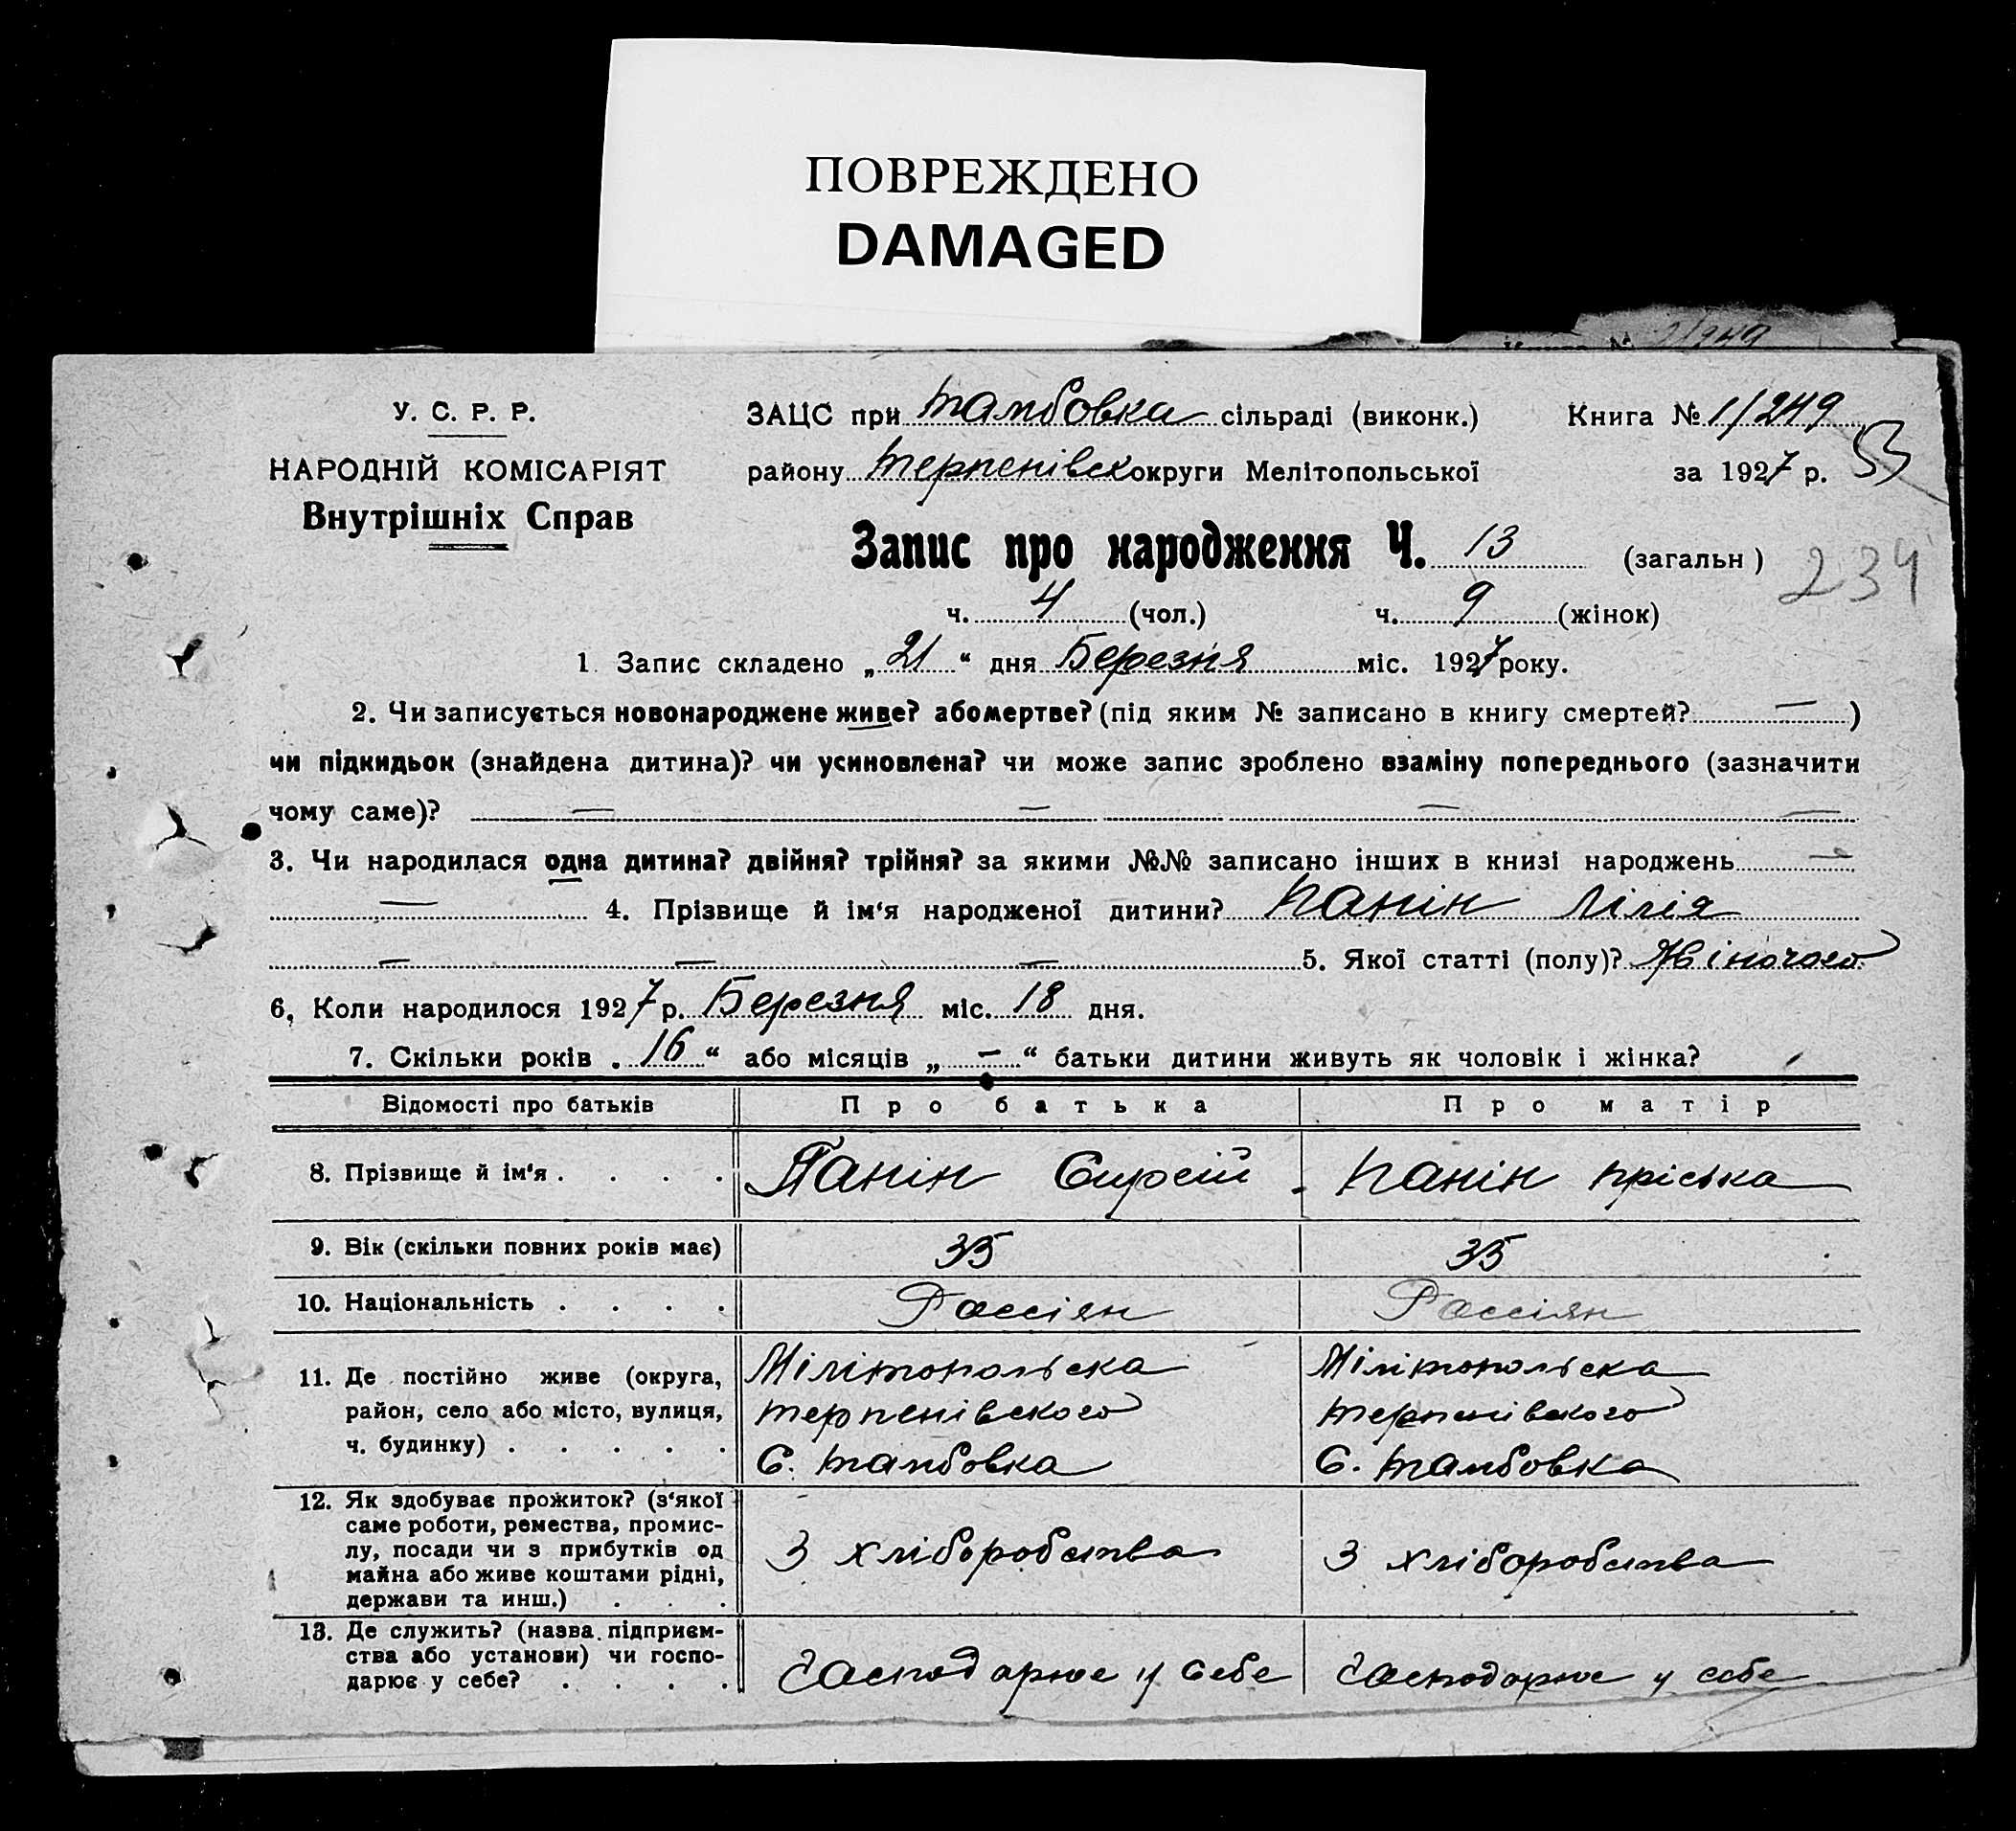 ПОВРЕЖДЕНО
DAMAGED
У. С. Р. Р.
НАРОДНІЙ КОМІСАРІЯТ
Внутрішніх Справ
ЗАЦС при Тамбовка сільраді (виконк.) Книга № 1/249
району Терпенівск округи Мелітопольської за 1927 р. 53
Запис про народження Ч. 13 (загальн)
234
ч. 4 (чол.) ч. 9 (жінок)
1. Запис складено „21“ дня Березня міс. 1927 року.
2. Чи записується новонароджене живе? або мертве? (під яким № записано в книгу смертей? — )
чи підкидьок (знайдена дитина)? чи усиновлена? чи може запис зроблено взаміну попереднього (зазначити
чому саме)? — — — —
3. Чи народилася одна дитина? двійня? трійня? за якими №№ записано інших в книзі народжень —
— 4. Прізвище й ім‘я народженої дитини? Панін Лілія
— — — 5. Якої статті (полу)? Жіночого
6. Коли народилося 1927 р. Березня міс. 18 дня.
7. Скільки років „16“ або місяців „—“ батьки дитини живуть як чоловік і жінка?
Відомості про батьків Про батька Про матір
8. Прізвище й ім‘я . . . . Панін Панін Пріська
9. Вік (скільки повних років має) 35 35
10. Національність . . . . Россіян Россіян
11. Де постійно живе (округа, Мілітопольска Мілітопольска
район, село або місто, вулиця, Терпенівского Терпенівского
ч. будинку) . . . . . С. Тамбовка С. Тамбовка
12. Як здобуває прожиток? (з‘якої
саме роботи, ремества, промис-
лу, посади чи з прибутків од З хліборобства З хліборобства
майна або живе коштами рідні,
держави та инш.) . . .
13. Де служить? (назва підприєм-
ства або установи) чи госпо- Господарює у себе Господарює у себе
дарює у себе? . . . .